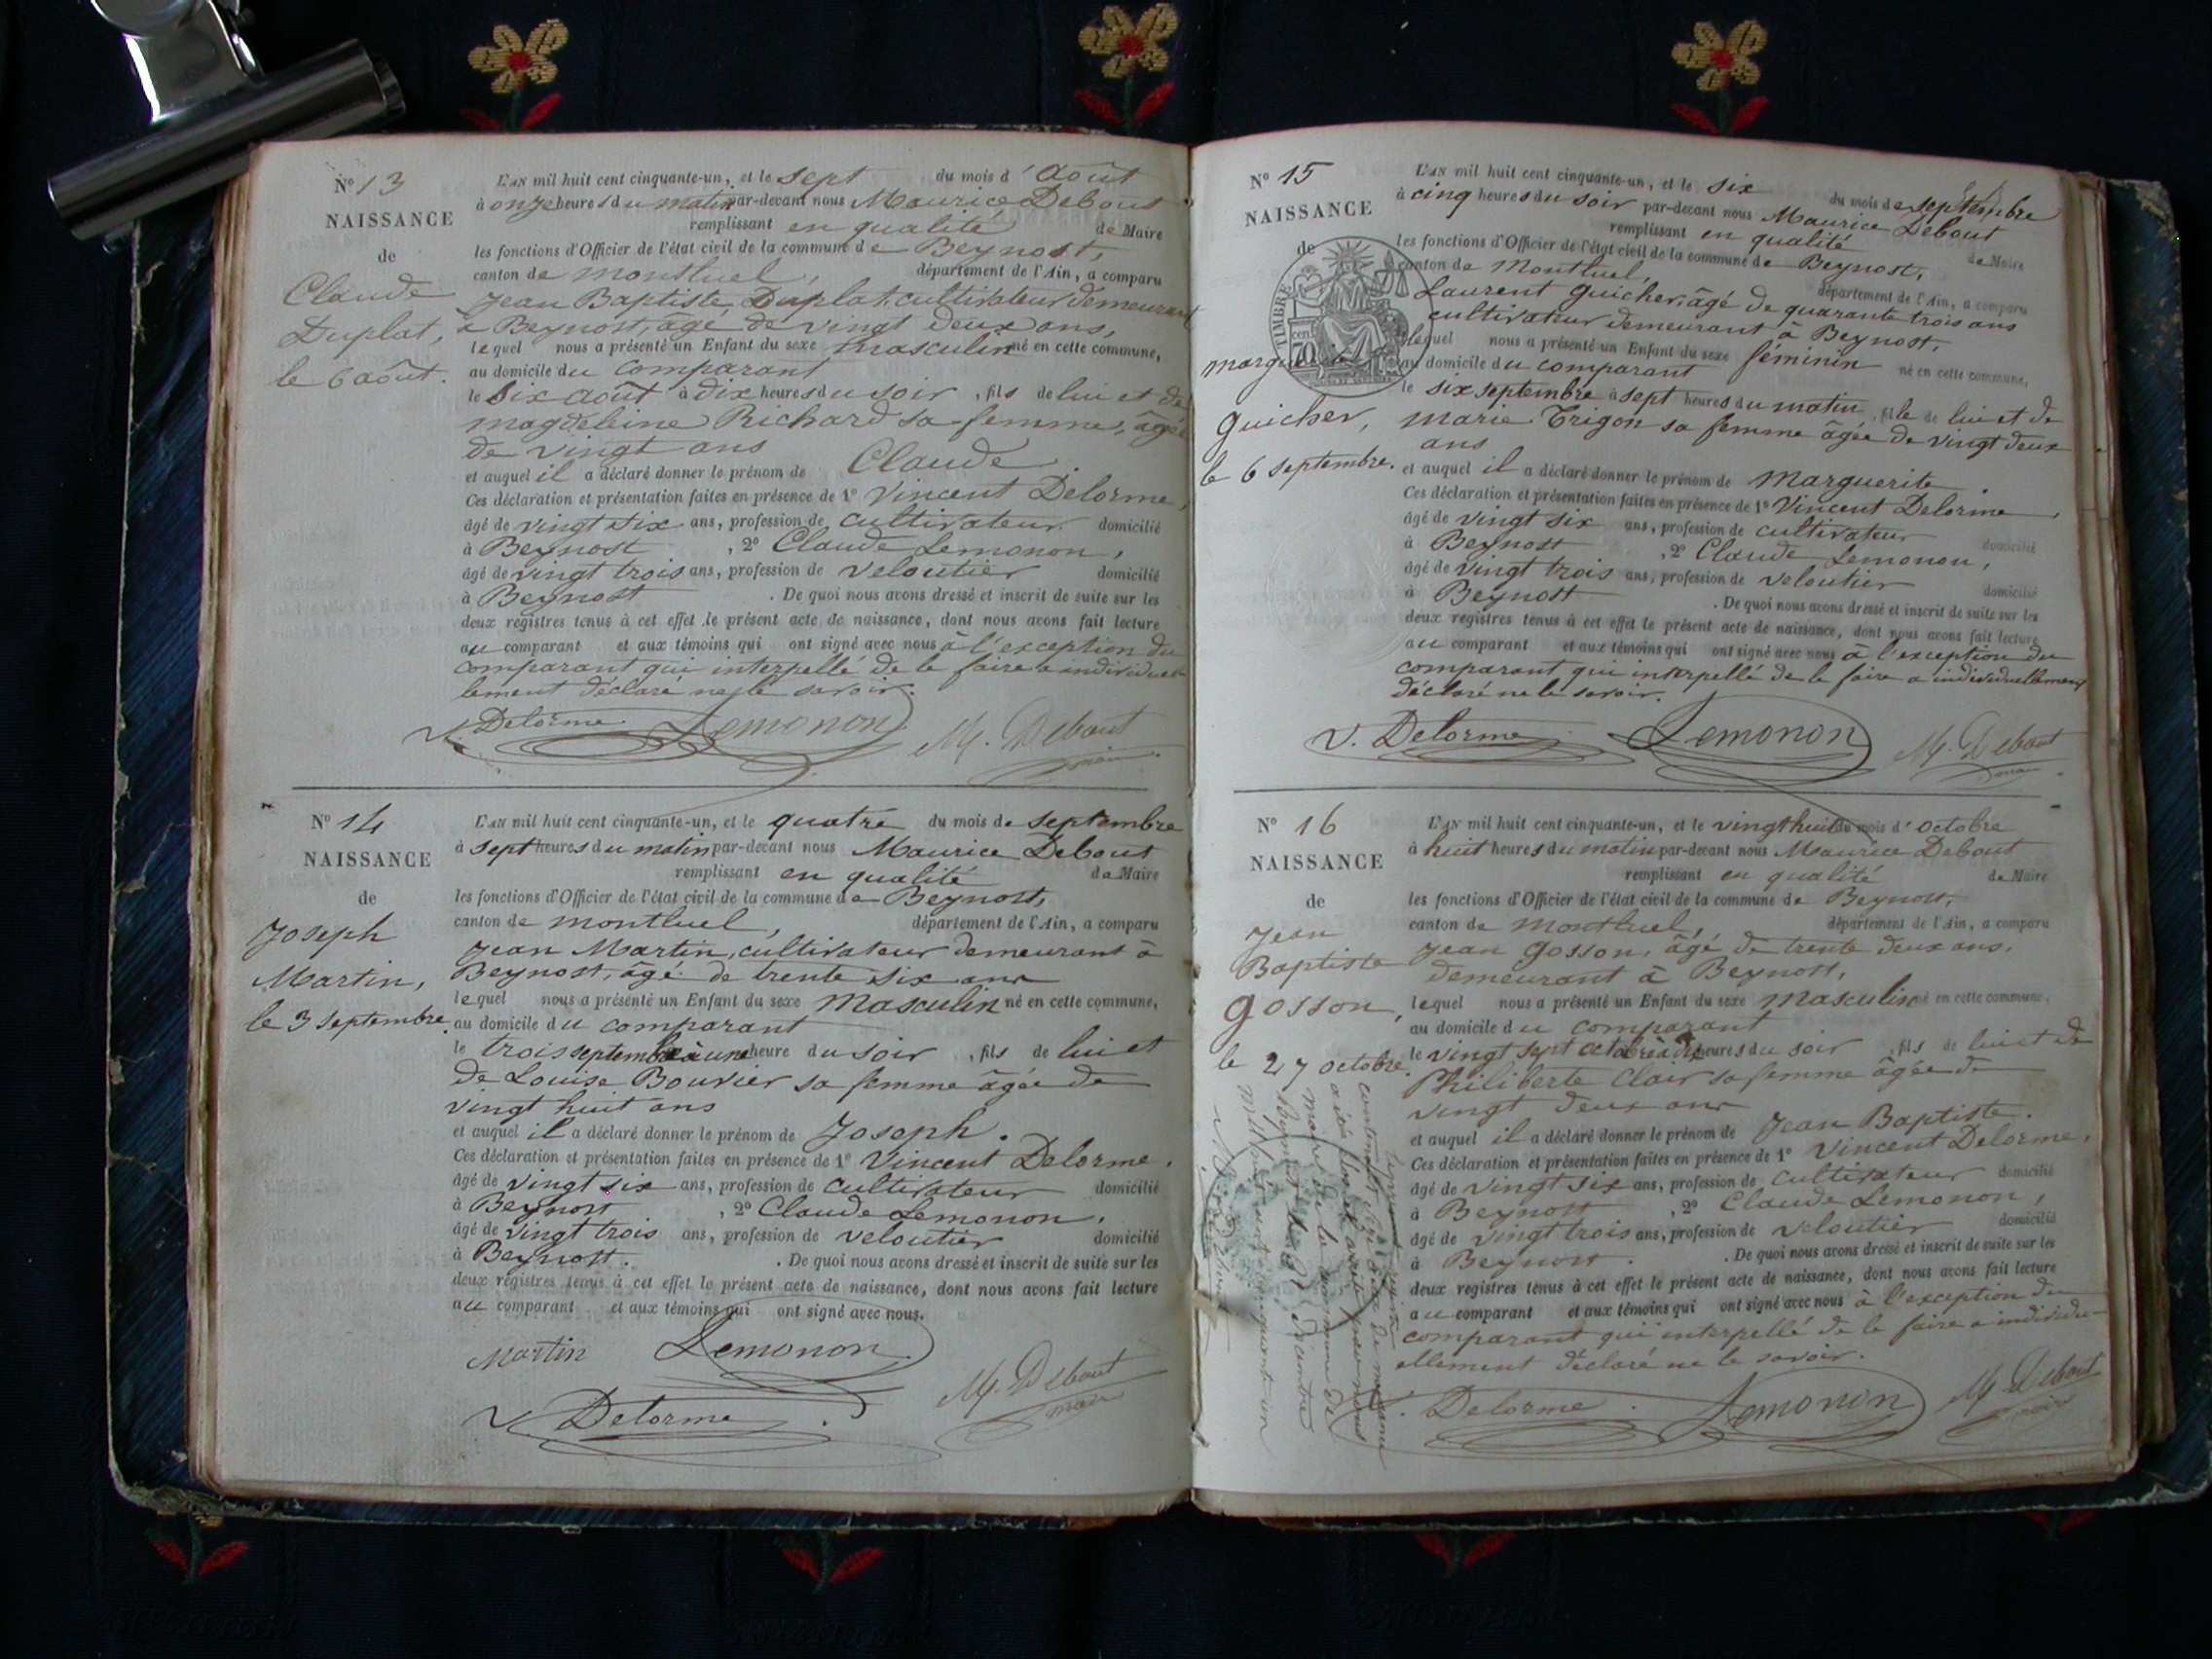 N° 13
NAISSANCE
de
Claude
Duplat,
le 6 août.
L'AN mil huit cent cinquante-un, et le sept du mois d'août
à onze heures du matin par-devant nous Maurice Debout
remplissant en qualité de Maire
les fonctions d'Officier de l'état civil de la commune de Beynost,
canton de montluel, département de l'Ain, a comparu
Jean Baptiste Duplat, cultivateur demeurant
à Beynost, âgé de vingt deux ans,
lequel nous a présenté un Enfant du sexe masculin né en cette commune,
au domicile du comparant
le six août à dix heures du soir, fils de lui et de
magdeleine Richard sa femme, âgée
de vingt ans
et auquel il a déclaré donner le prénom de Claude
Ces déclaration et présentation faites en présence de 1° Vincent Delorme,
âgé de vingt six ans, profession de cultivateur domicilié
à Beynost, 2° Claude Lemonon,
âgé de vingt trois ans, profession de veloutier domicilié
à Beynost. De quoi nous avons dressé et inscrit de suite sur les
deux registres tenus à cet effet le présent acte de naissance, dont nous avons fait lecture
au comparant et aux témoins qui ont signé avec nous à l'exception du
comparant qui interpellé de le faire a individuel-
lement déclaré ne le savoir.
V. Delorme Lemonon M. Debout
maire
N° 14
NAISSANCE
de
Joseph
Martin,
le 3 septembre.
L'AN mil huit cent cinquante-un, et le quatre du mois de septembre
à sept heures du matin par-devant nous Maurice Debout
remplissant en qualité de Maire
les fonctions d'Officier de l'état civil de la commune de Beynost,
canton de montluel, département de l'Ain, a comparu
Jean Martin, cultivateur demeurant à
Beynost, âgé de trente six ans
lequel nous a présenté un Enfant du sexe Masculin né en cette commune,
au domicile du comparant
le trois septembre à une heure du soir, fils de lui et
de Louise Bouvier sa femme âgée de
vingt huit ans
et auquel il a déclaré donner le prénom de Joseph.
Ces déclaration et présentation faites en présence de 1° Vincent Delorme,
âgé de vingt six ans, profession de cultivateur domicilié
à Beynost, 2° Claude Lemonon,
âgé de vingt trois ans, profession de veloutier domicilié
à Beynost. De quoi nous avons dressé et inscrit de suite sur les
deux registres tenus à cet effet le présent acte de naissance, dont nous avons fait lecture
au comparant et aux témoins qui ont signé avec nous.
Martin Lemonon
V. Delorme M. Debout
maire
N° 15
NAISSANCE
de
TIMBRE
70 cen
Marguerite
Guicher,
le 6 septembre.
L'AN mil huit cent cinquante-un, et le six du mois de septembre
à cinq heures du soir par-devant nous Maurice Debout
remplissant en qualité de Maire
les fonctions d'Officier de l'état civil de la commune de Beynost,
canton de Montluel, département de l'Ain, a comparu
Laurent Guicher, âgé de quarante trois ans
cultivateur demeurant à Beynost,
lequel nous a présenté un Enfant du sexe féminin né en cette commune,
au domicile du comparant
le six septembre à sept heures du matin, fille de lui et de
marie Trigon sa femme âgée de vingt deux
ans
et auquel il a déclaré donner le prénom de Marguerite
Ces déclaration et présentation faites en présence de 1° Vincent Delorme,
âgé de vingt six ans, profession de cultivateur domicilié
à Beynost, 2° Claude Lemonon,
âgé de vingt trois ans, profession de veloutier domicilié
à Beynost. De quoi nous avons dressé et inscrit de suite sur les
deux registres tenus à cet effet le présent acte de naissance, dont nous avons fait lecture
au comparant et aux témoins qui ont signé avec nous à l'exception du
comparant qui interpellé de le faire a individuellement
déclaré ne le savoir.
V. Delorme Lemonon M. Debout
maire
N° 16
NAISSANCE
de
Jean
Baptiste
Gosson,
le 27 octobre.
L'AN mil huit cent cinquante-un, et le vingt huit du mois d'octobre
à huit heures du matin par-devant nous Maurice Debout
remplissant en qualité de Maire
les fonctions d'Officier de l'état civil de la commune de Beynost,
canton de montluel, département de l'Ain, a comparu
Jean Gosson, âgé de trente deux ans,
demeurant à Beynost,
lequel nous a présenté un Enfant du sexe Masculin né en cette commune,
au domicile du comparant
le vingt sept octobre à dix heures du soir, fils de lui et de
Philiberte Clair sa femme âgée de
vingt deux ans
et auquel il a déclaré donner le prénom de Jean Baptiste.
Ces déclaration et présentation faites en présence de 1° Vincent Delorme,
âgé de vingt six ans, profession de cultivateur domicilié
à Beynost, 2° Claude Lemonon,
âgé de vingt trois ans, profession de veloutier domicilié
à Beynost. De quoi nous avons dressé et inscrit de suite sur les
deux registres tenus à cet effet le présent acte de naissance, dont nous avons fait lecture
au comparant et aux témoins qui ont signé avec nous à l'exception du
comparant qui interpellé de le faire a individu-
ellement déclaré ne le savoir.
V. Delorme Lemonon M. Debout
maire
présent registre
contenant
a été clos et arrêté par nous
maire de la commune de
Beynost le 31 Décembre
mil huit cent cinquante-un